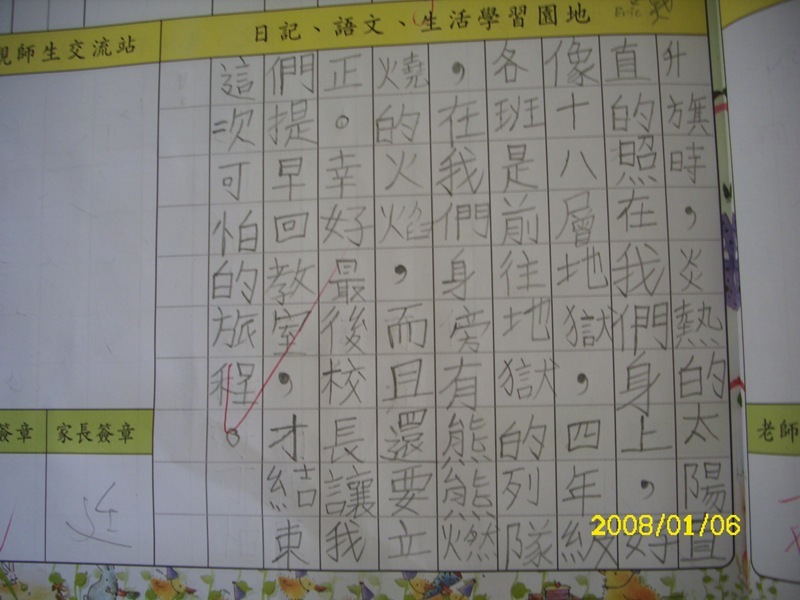 日記、語文、生活學習園地
Eric
師生交流站
升旗時，炎熱的太陽直
直的照在我們身上，好
像十八層地獄，四年級
各班是前往地獄的列隊
，在我們身旁有熊熊燃
燒的火焰，而且還要立
正。幸好最後校長讓我
們提早回教室，才結束
這次可怕的旅程。
簽章
家長簽章
老師
2008/01/06